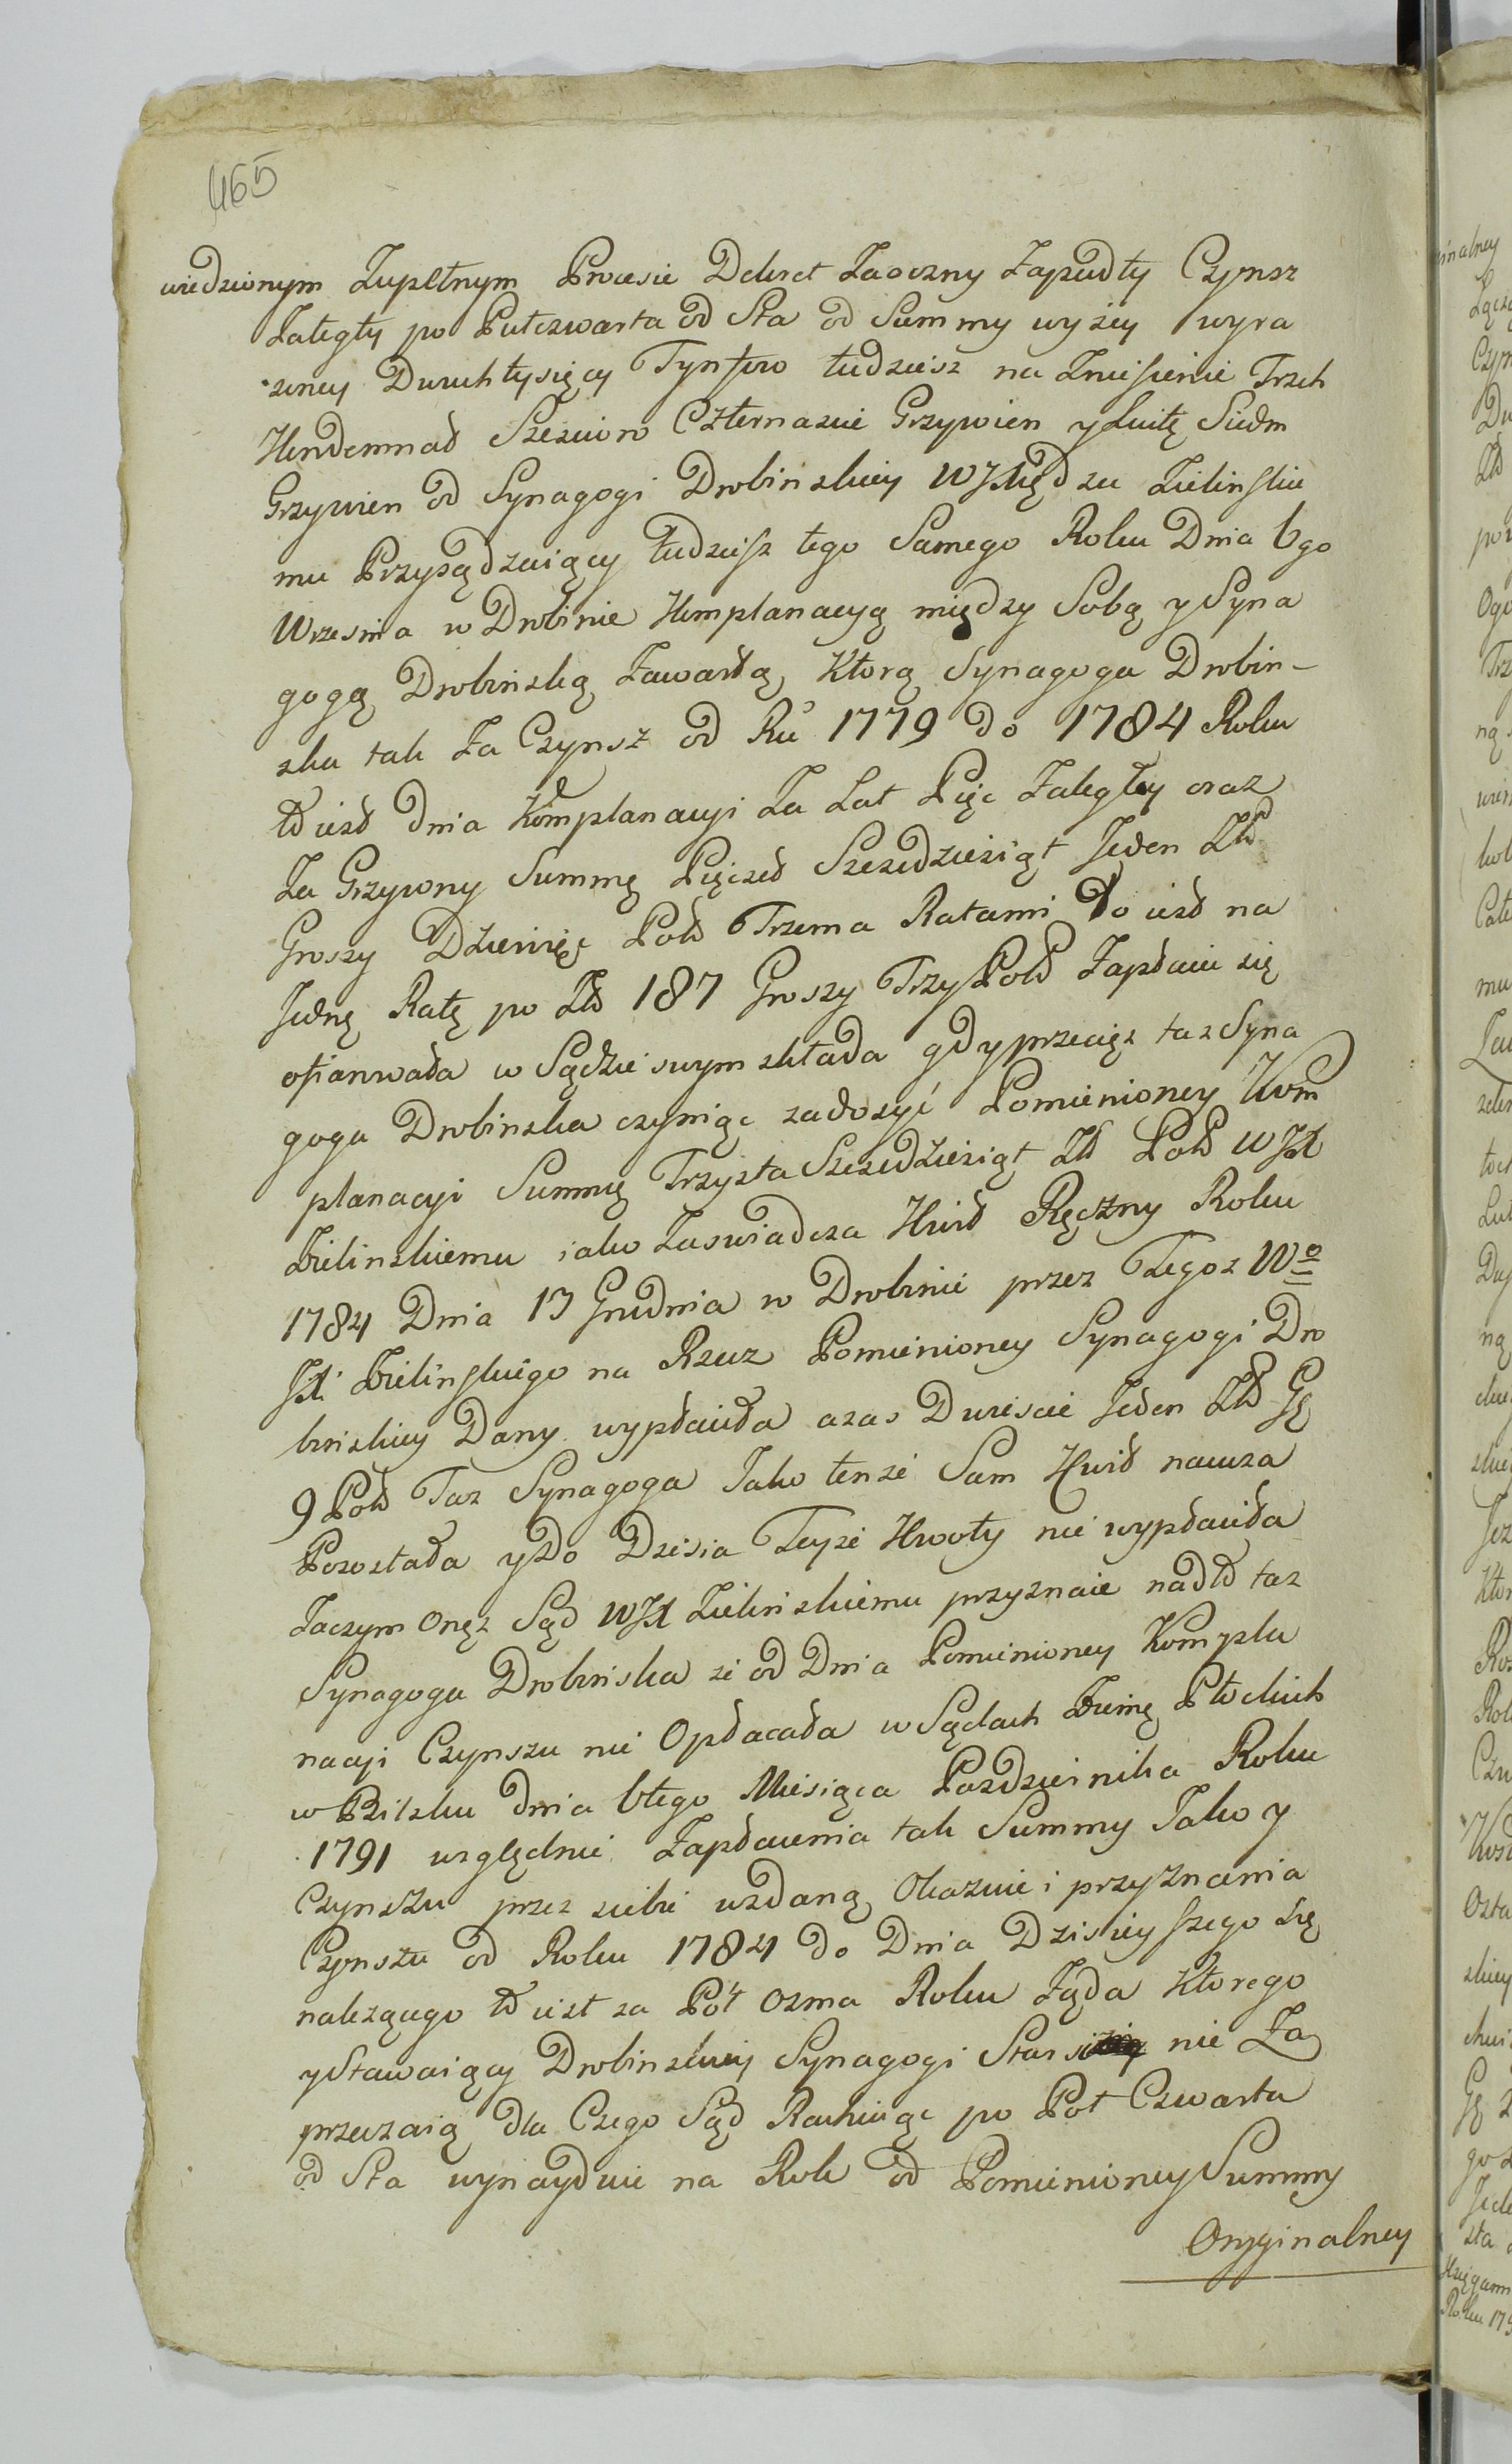 465
wiedzionym Zupełnym Procesie Dekret Zaoczny Zapadły Czynsz
Zaległy po Pułczwarta od Sta od Summy wyżey wyra
żoney Dwuch tysięcy Tynfow tudziesz na Zniesienie Trzech
Kondemnad Szesciow Czternascie Grzywien y Luitę Siedm
Grzywien od Synagogi Drobinskiey WJX Zielinskie
mu Przysądzaiący tudziesz tego Samego Roku Dnia 6go
Wrzesnia w Drobinie Komplanacyą między Sobą y Syna
gogą Drobinską Zawartą, Ktorą Synagoga Drobin-
ska tak Za Czynsz od Ru 1779 do 1784 Roku
to iest dnia Komplanacyi Za Lat Pięc Zaległy oraz
Za Grzywny Summę Pięcset Szescdziesiąt Jeden Zł
Groszy Dziewięc Pol Trzema Ratami to iest na
Jednę Ratę po Zł 187 Groszy Trzy Pol Zapłacic się
ofiarowała w Sądzie swym składa gdy przecięz taz Syna
goga Drobinska czyniąc zadosyć Pomienioney Kom
planacyi Summę Trzysta Szescdziesiąt Zł Pol WJX
Zielinskiemu iako Zaswiadcza Kwit Ręczny Roku
1784 Dnia 13 Grudnia w Drobinie przez Tegoz Wo
JX Zielinskiego na Rzecz Pomienioney Synagogi Dro
binskiey Dany wypłaciła azas Dwiescie Jeden Zł Gę
9 Pol Taz Synagoga Jako tenże Sam Kwit naucza
Pozostała y do Dzisia Teyże Kwoty nie wypłaciła
Zaczym onęz Sąd WJX Zielinskiemu przyznaie nadto taz
Synagoga Drobinska ze od Dnia Pomienioney Kompla
nacyi Czynszu nie Opłacała w Sądach Ziemę Płockich
w Bilsku dnia 6tego Miesiąca Pazdziernika Roku
1791 względnie Zapłacenia tak Summy Jako y
Czynszu przez siebie wzdaną, Okazuie i przyznania
Czynszu od Roku 1784 do Dnia Dzisieyszego się
nalezącego to iest za Pół osma Roku Ząda Ktorego
y Stawaiący Drobinskiey Synagogi Starsi nie Za
przeczaią dla Czego Sąd Rachuiąc po Pół Czwarta
od Sta wynayduie na Rok od Pomienioney Summy
Oryginalney